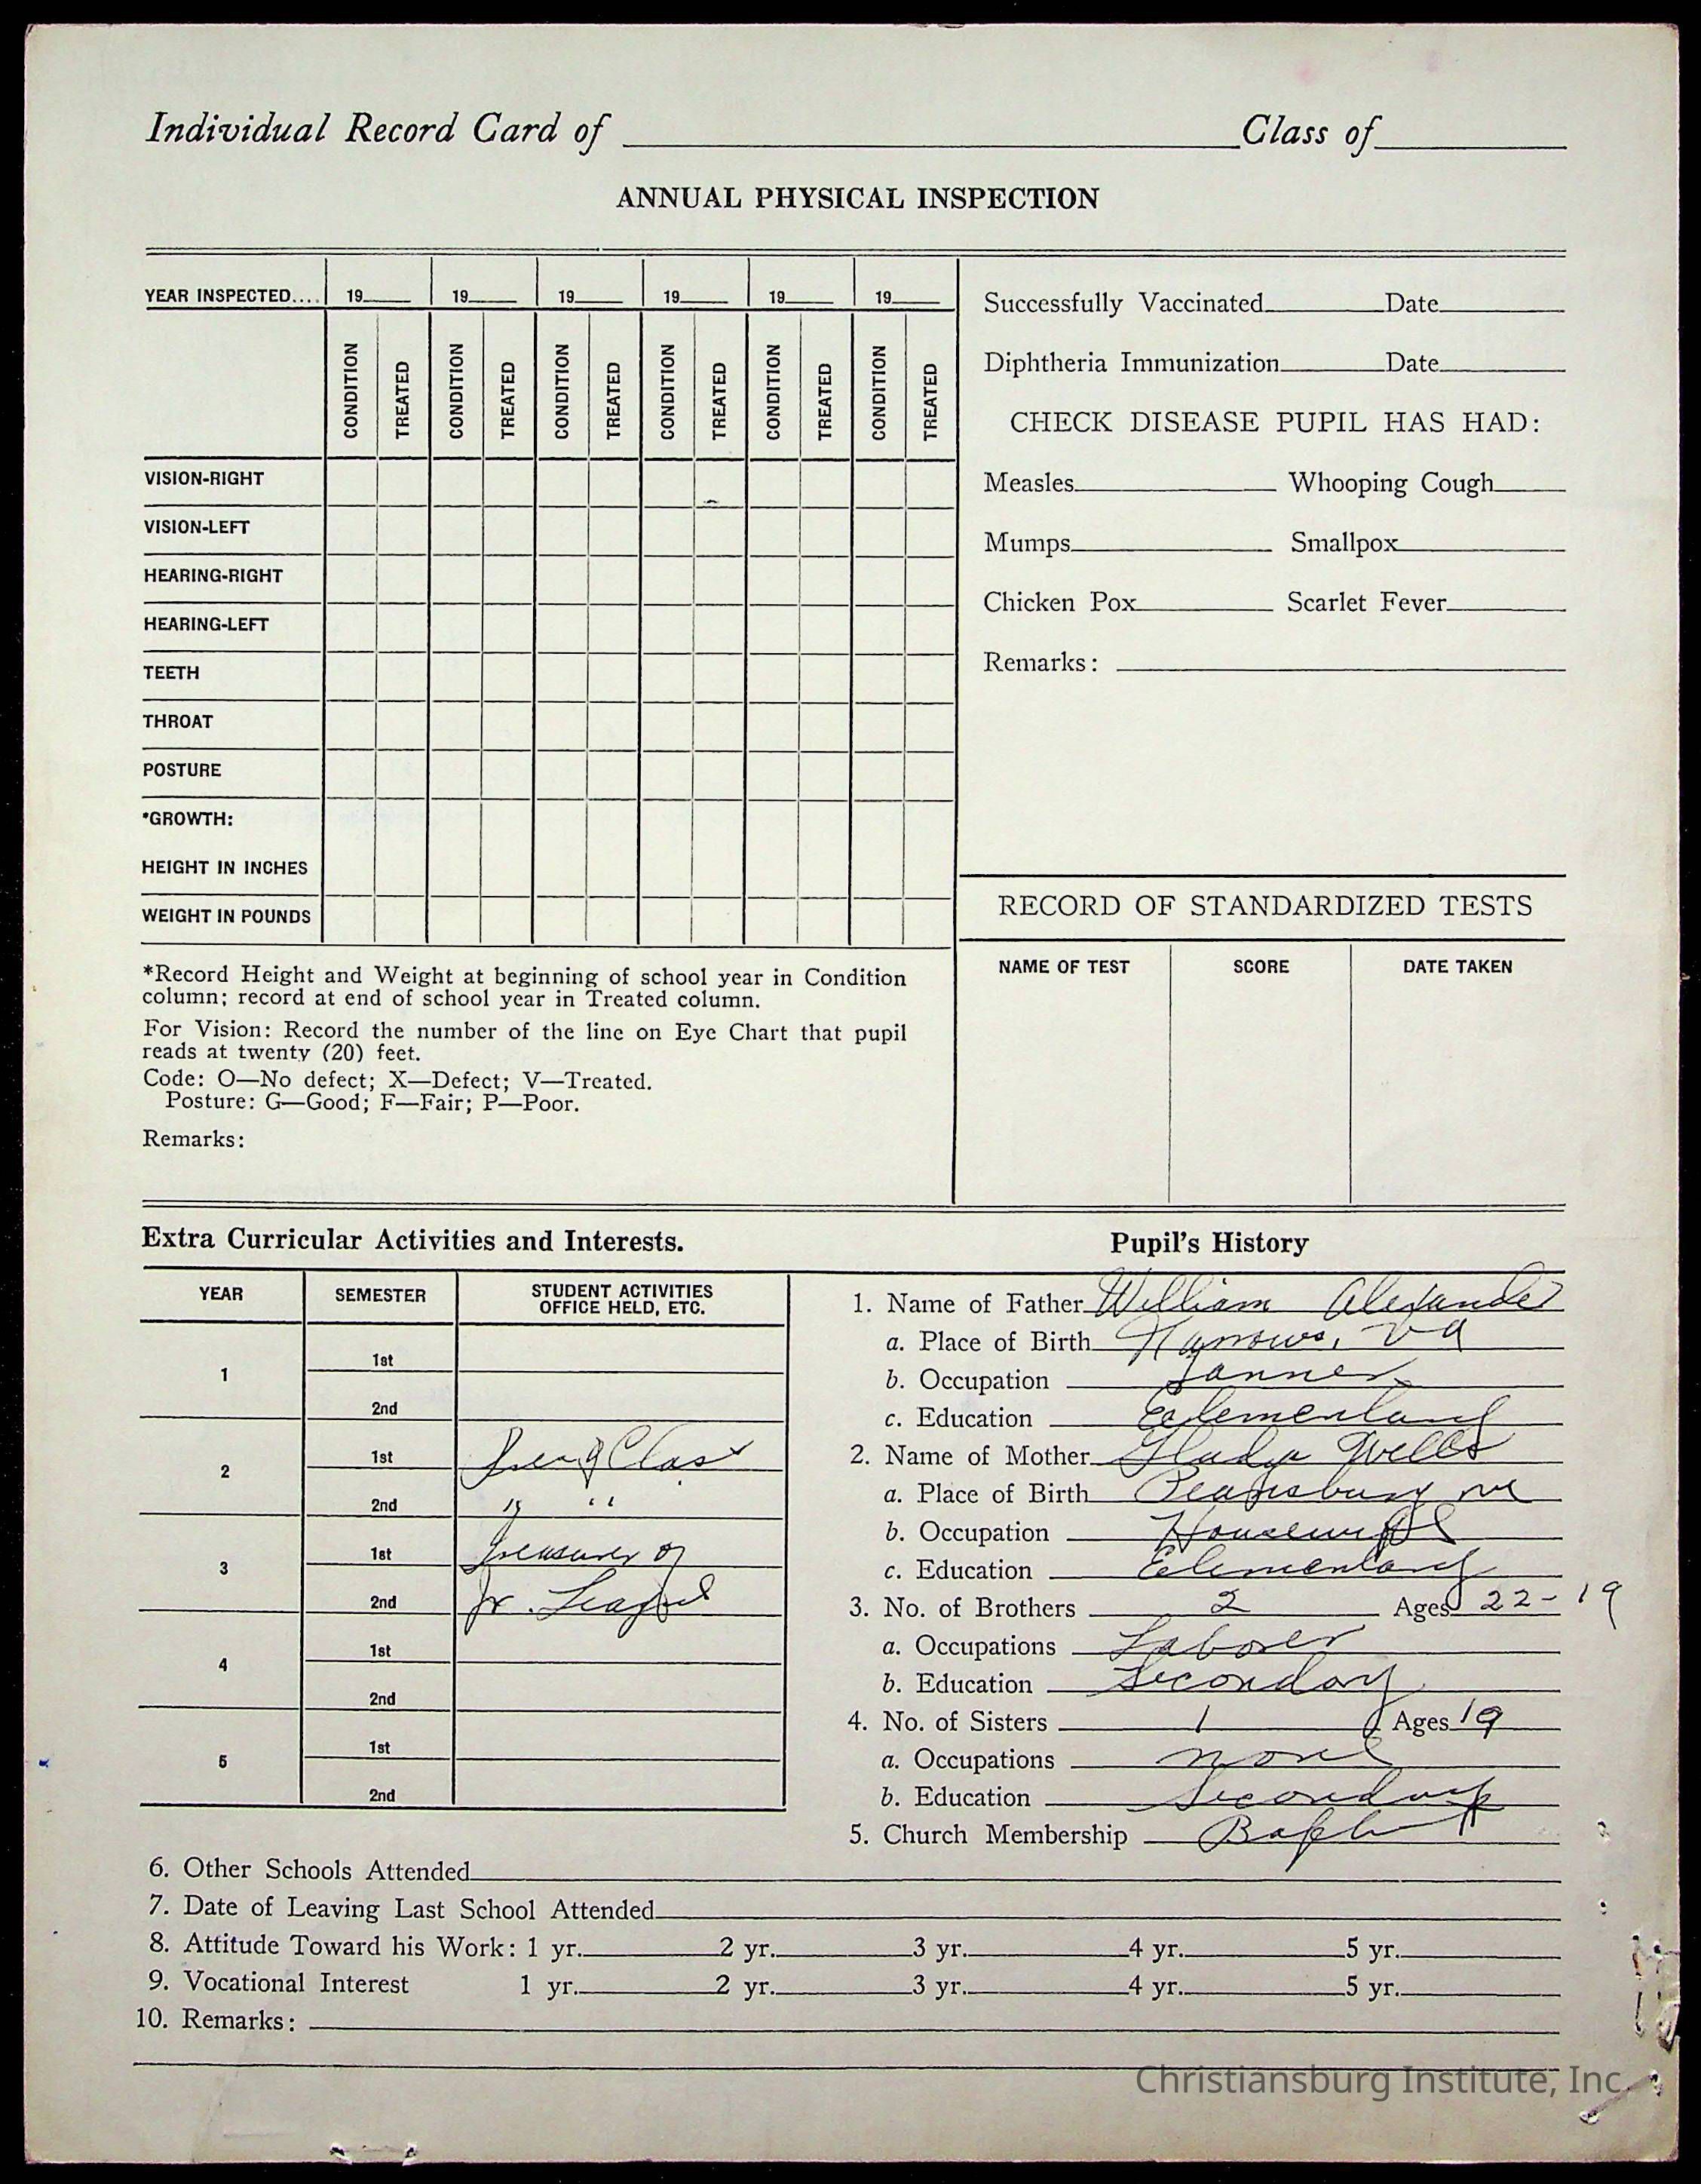 Individual Record Card of Class of
ANNUAL PHYSICAL INSPECTION
YEAR INSPECTED.... 19 19 19 19 19 19
CONDITION TREATED CONDITION TREATED CONDITION TREATED CONDITION TREATED CONDITION TREATED CONDITION TREATED
VISION-RIGHT
VISION-LEFT
HEARING-RIGHT
HEARING-LEFT
TEETH
THROAT
POSTURE
*GROWTH:
HEIGHT IN INCHES
WEIGHT IN POUNDS
*Record Height and Weight at beginning of school year in Condition
column; record at end of school year in Treated column.
For Vision: Record the number of the line on Eye Chart that pupil
reads at twenty (20) feet.
Code: O—No defect; X—Defect; V—Treated.
Posture: G—Good; F—Fair; P—Poor.
Remarks:
Successfully Vaccinated Date
Diphtheria Immunization Date
CHECK DISEASE PUPIL HAS HAD:
Measles Whooping Cough
Mumps Smallpox
Chicken Pox Scarlet Fever
Remarks:
RECORD OF STANDARDIZED TESTS
NAME OF TEST SCORE DATE TAKEN
Extra Curricular Activities and Interests.
YEAR SEMESTER STUDENT ACTIVITIES
OFFICE HELD, ETC.
1 1st
2nd
2 1st Class
2nd " "
3 1st Treasurer of
2nd Jr. League
4 1st
2nd
5 1st
2nd
Pupil's History
1. Name of Father William Alexander
a. Place of Birth Narrows, Va
b. Occupation Tanner
c. Education Elementary
2. Name of Mother Gladys Wells
a. Place of Birth Pearisburg
b. Occupation Housewife
c. Education Elementary
3. No. of Brothers 2 Ages 22-19
a. Occupations Laborer
b. Education Secondary
4. No. of Sisters 1 Ages 19
a. Occupations none
b. Education Secondary
5. Church Membership Baptist
6. Other Schools Attended
7. Date of Leaving Last School Attended
8. Attitude Toward his Work: 1 yr. 2 yr. 3 yr. 4 yr. 5 yr.
9. Vocational Interest 1 yr. 2 yr. 3 yr. 4 yr. 5 yr.
10. Remarks:
Christiansburg Institute, Inc.